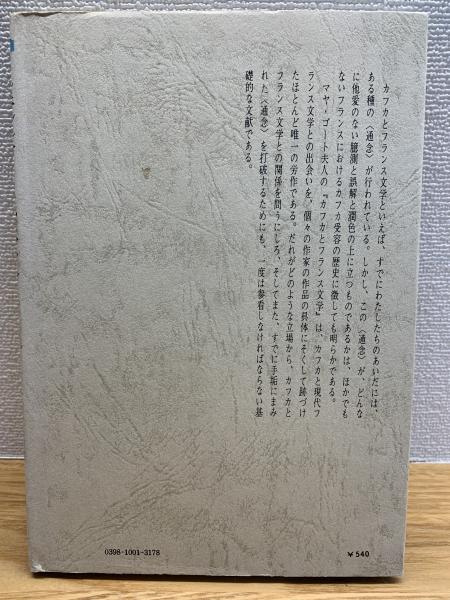 カフカとフランス文学といえば、すでにわたしたちのあいだには、
ある種の〈通念〉が行われている。しかし、この〈通念〉が、どんな
に他愛のない臆測と誤解と潤色の上に立つものであるかは、ほかでも
ないフランスにおけるカフカ受容の歴史に徴しても明らかである。
マヤ・ゴート夫人の『カフカとフランス文学』は、カフカと現代フ
ランス文学との出会いを、個々の作家の作品の具体にそくして跡づけ
たほとんど唯一の労作である。だれがどのような立場から、カフカと
フランス文学との関係を問うにしろ、そしてまた、すでに手垢にまみ
れた〈通念〉を打破するためにも、一度は参看しなければならない基
礎的な文献である。
0398-1001-3178
¥540